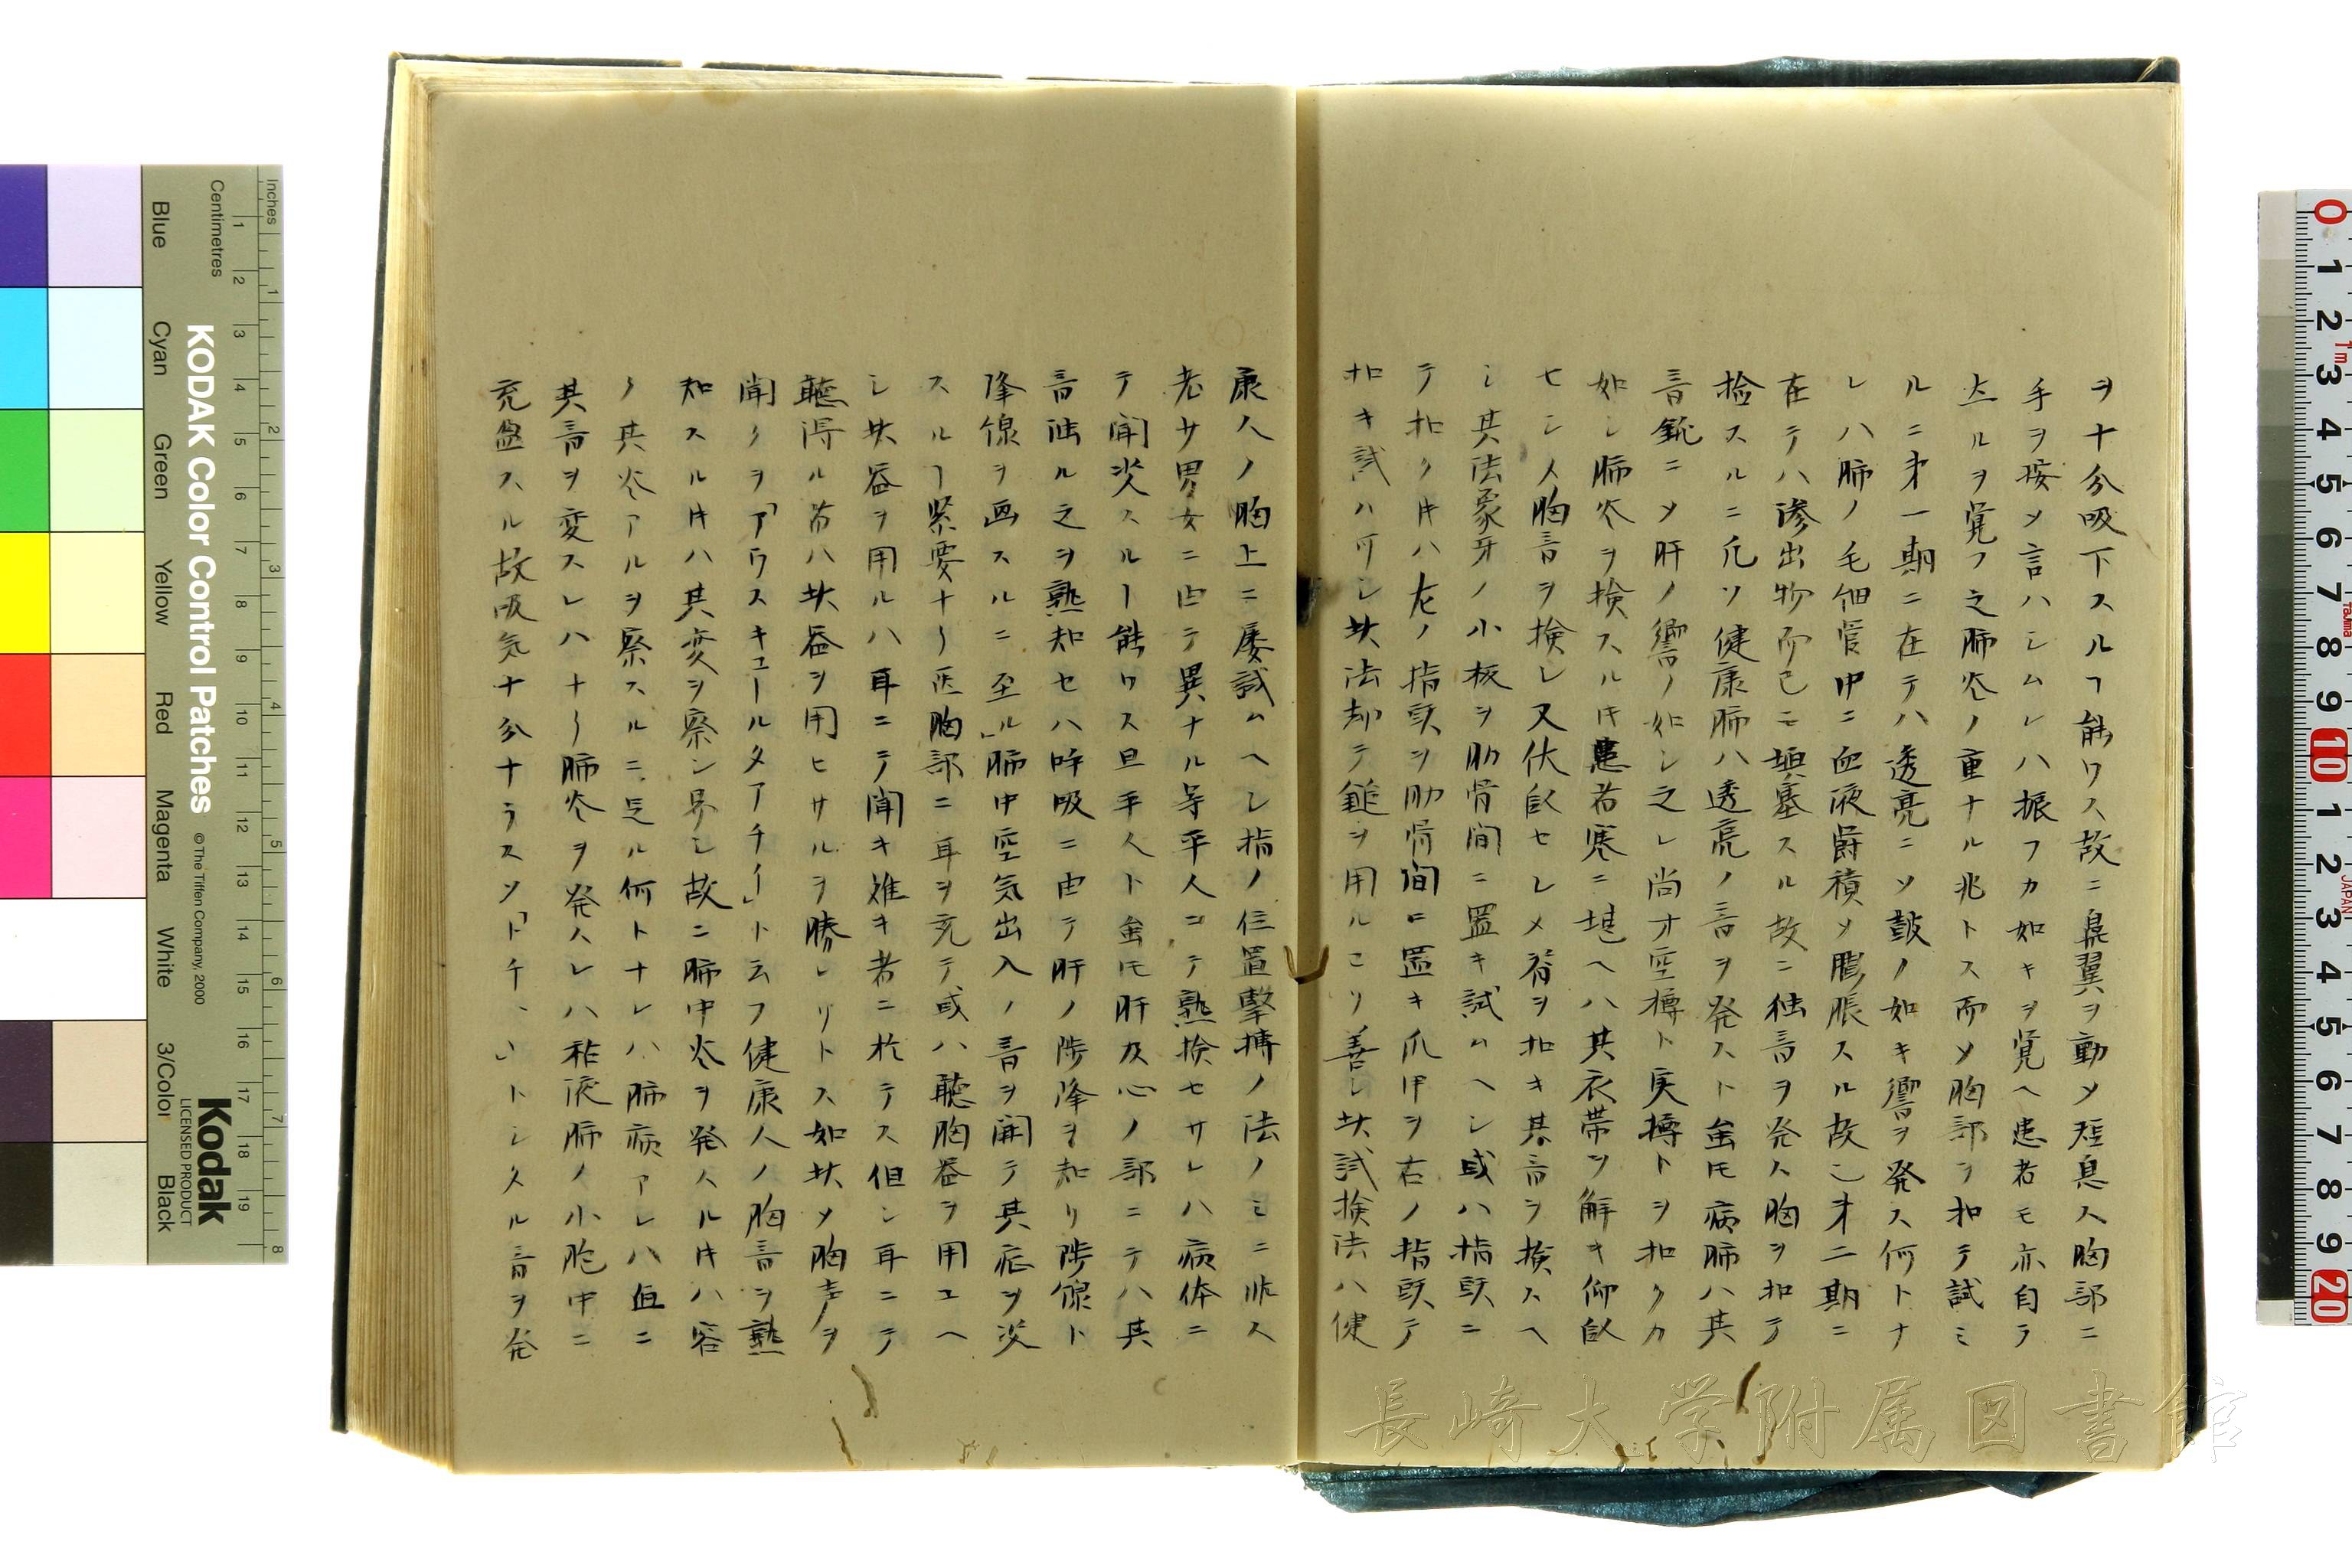 ヲ十分吸下スルヿ能ワス故ニ鼻翼ヲ動メ短息ス胸部ニ
手ヲ按メ言ハシムレハ振フカ如キヲ覚ヘ患者モ亦自ラ
然ルヲ覚フ之肺炎ノ重ナル兆トス而メ胸部ヲ扣テ試ミ
ルニ才一期ニ在テハ透亮ニソ鼓ノ如キ響ヲ発ス何トナ
レハ肺ノ毛細管中ニ血液欝積メ膨脹スル故ニ才二期ニ
在テハ滲出物而已ニテ填塞スル故ニ独音ヲ発ス胸ヲ扣テ
撿スルニ凡ソ健康肺ハ透亮ノ音ヲ発スト虽𪜈病肺ハ其
音鈍ニメ肝ノ響ノ如シ之レ尚オ空樽ト実樽トヲ扣クカ
如シ肺炎ヲ検スル𪜈患若寒ニ堪ヘハ其衣帯ヲ解キ仰臥
セシメ胸音ヲ検シ又伏臥セシメ脊ヲ扣キ其音ヲ検スヘ
シ其法象牙ノ小板ヲ肋骨間ニ置キ試ムヘシ或ハ指頭ニ
テ扣ク𪜈ハ左ノ指頭ヲ肋骨間ニ置キ爪甲ヲ右ノ指頭テ
扣キ試ハ可シ此法却テ鎚ヲ用ルヨリ善シ此試検法ハ健
康人ノ胸上ニ屡試ムヘシ指ノ位置撃搏ノ法ノミニ非ス
老少男女ニ由テ異ナル等平人ニテ熟検セサレハ病体ニ
テ聞决スルヿ能ワス且平人ト虽𪜈肝及心ノ部ニテハ其
音陥ル之ヲ熟知セハ呼吸ニ由テ肝ノ陟降ヲ知リ陟線ト
降線ヲ画スルニ至ル」肺中空気出入ノ音ヲ聞テ其症ヲ决
スルヿ緊要ナリ医胸部ニ耳ヲ充テ或ハ聴胸器ヲ用ユヘ
シ此器ヲ用ルハ耳ニテ聞キ難キ者ニ於テス但シ耳ニテ
聴得ル者ハ此器ヲ用ヒサルヲ勝レリトス如此メ胸声ヲ
聞クヲ「アウスキユールタアチイ」ト云フ健康人ノ胸音ヲ熟
知スル𪜈ハ其変ヲ察シ易シ故ニ肺中炎ヲ発スル𪜈ハ容
ク其炎アルヲ察スルニ足ル何トナレハ肺病アレハ直ニ
其音ヲ変スレハナリ肺炎ヲ発スレハ粘液肺ノ小胞中ニ
充盈スル故吸気十分ナラスソ「トチ、」トシタル音ヲ発
長崎大学附属図書館
KODAK Color Control Patches
© The Tiffen Company, 2000
Kodak
LICENSED PRODUCT
Inches
Centimetres
Blue
Cyan
Green
Yellow
Red
Magenta
White
3/Color
Black